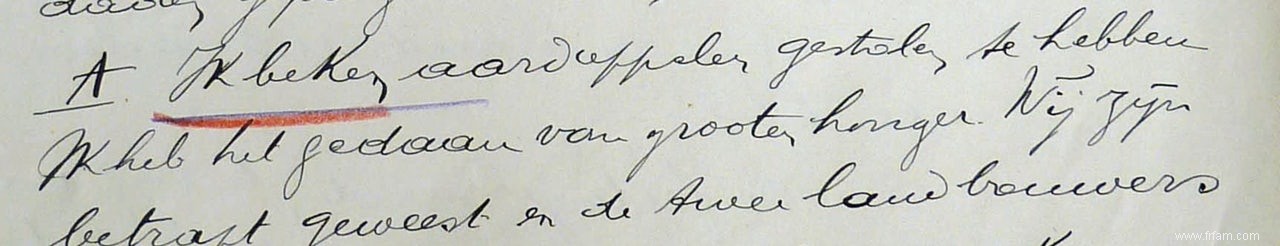 A. Ik beken aardappelen gestolen te hebben
Ik heb het gedaan van grooten honger. Wij zijn
betrapt geweest en de twee landbouwers
www.fifam.com